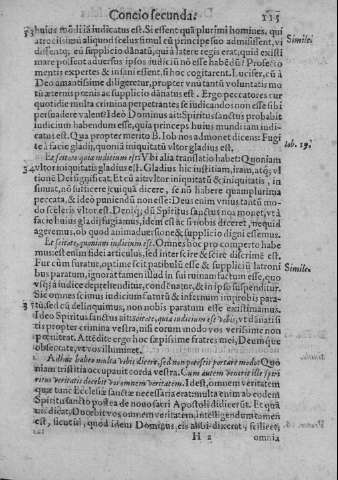 Concio secunda. 115
huius mūdi iā iudicatus est. Si essent quā plurimi homines, qui
atrocissimū aliquod scelus simul cū principe suo admisissent, vi
dissentq; eū supplicio dānatū, qui à latere regis erat, quid existi
mare possent aduersus ipsos iudiciū nō esse habēdū? Profecto
mentis expertes & insani essent, si hoc cogitarent. Lucifer, cū à
Deo amantissimè diligeretur, propter vnū tantū voluntatis mo
tū æternis pœnis ac supplicio dānatus est. Ergo peccatores cur
quotidie multa crimina perpetrantes se iudicandos non esse sibi
persuadere valent? Ideò Dominus ait: Spiritus sanctus probabit
iudicium habendum esse, quia princeps huius mundi iam iudi-
catus est. Qua propter merito B. Iob nos admonet dicens: Fugi
te à facie gladij, quoniā iniquitatū vltor gladius est.
Simile.
Iob. 19.
Et scitote quia iudicium est: Vbi alia translatio habet: Quoniam
34 vltor iniquitatis gladius est. Gladius hic iustitiam, iram, atq; vl
tionē Dei significat. Et cū ait vltor iniquitatū & iniquitatis, in
sinuat, nō sufficere, cuiquā dicere, se nō habere quamplurima
percata, & ideò puniendū non esse: Deus enim vnius tantū mo-
do sceleris vltor est. Deniq; dū Spiritus sanctus nos monet, vt à
facie huius gladij fugiamus, idem est ac si nobis diceret, nequid
ageremus, ob quod animaduersione & supplicio digni essemus.
Et scitote, quoniam iudicium est. Omnes hoc pro comperto habe-
mus: est enim fidei articulus, sed inter scire & scire discrimē est.
Fur cùm furatur, optimè scit patibulū esse & suppliciū latroni
bus paratum, ignorat tamen illud in sui ruinam factum esse, quo
vsq; à iudice deprehenditur, condēnatur, & in ipso suspenditur.
Simile.
Sic omnes scimus iudicium futurū & infernum improbis para-
tū, sed cū delinquimus, non nobis paratum esse existimamus.
Ideò Spiritus sanctus ait: scitote, quia iudicium est vobis, vt dānati si
tis propter crimina vestra, nisi eorum modo vos verissimè non
pœniteat. Attēdite ergo hæc sæpissimè fratres mei, Deumque
obsecrate, vt vos illuminet.
Adhuc habeo multa vobis dicere, sed non potestis portare modo. Quo
niam tristitia occupauit corda vestra. Cum autem venerit ille spiri
tus veritatis docebit vos omnem veritatem. Id est, omnem veritatem
quæ tunc Ecclesiæ sanctæ necessaria erat: multa enim ab eodem
Spiritu sancto postea de nouo sacri Apostoli didicerūt. Et quā
uis dicat, Docebit vos omnem veritatem, intelligendum tamen
est, sicuti, quod idem Dominus, eis alibi dixerat, scilicet,
H 2 omnia